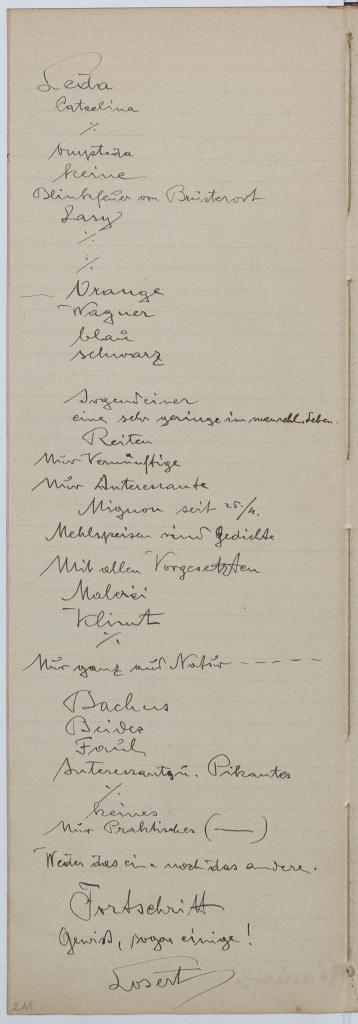 Leida
Catarina
·/.
Ompteda
keine
Blinkfeuer von Brüsterort
Lary
·/.
·/.
— Orange
Wagner
blau
schwarz
Irgend einer
eine sehr geringe im menschl. Leben.
Reiten
Nur Vernünftige
Nur Interessante
Mignon seit 25./4.
Mehlspeisen sind Gedichte
Mit allen Vorgesetzten
Malerei
Klimt
·/.
Nur ganz auf Natur - - - - -
Bachus
Beides
Faul
Interessantes u. Pikantes
·/.
keines
Nur Praktisches (—)
Weder das eine noch das andere.
Fortschritt
Gewiß, sogar einige!
Losert
211